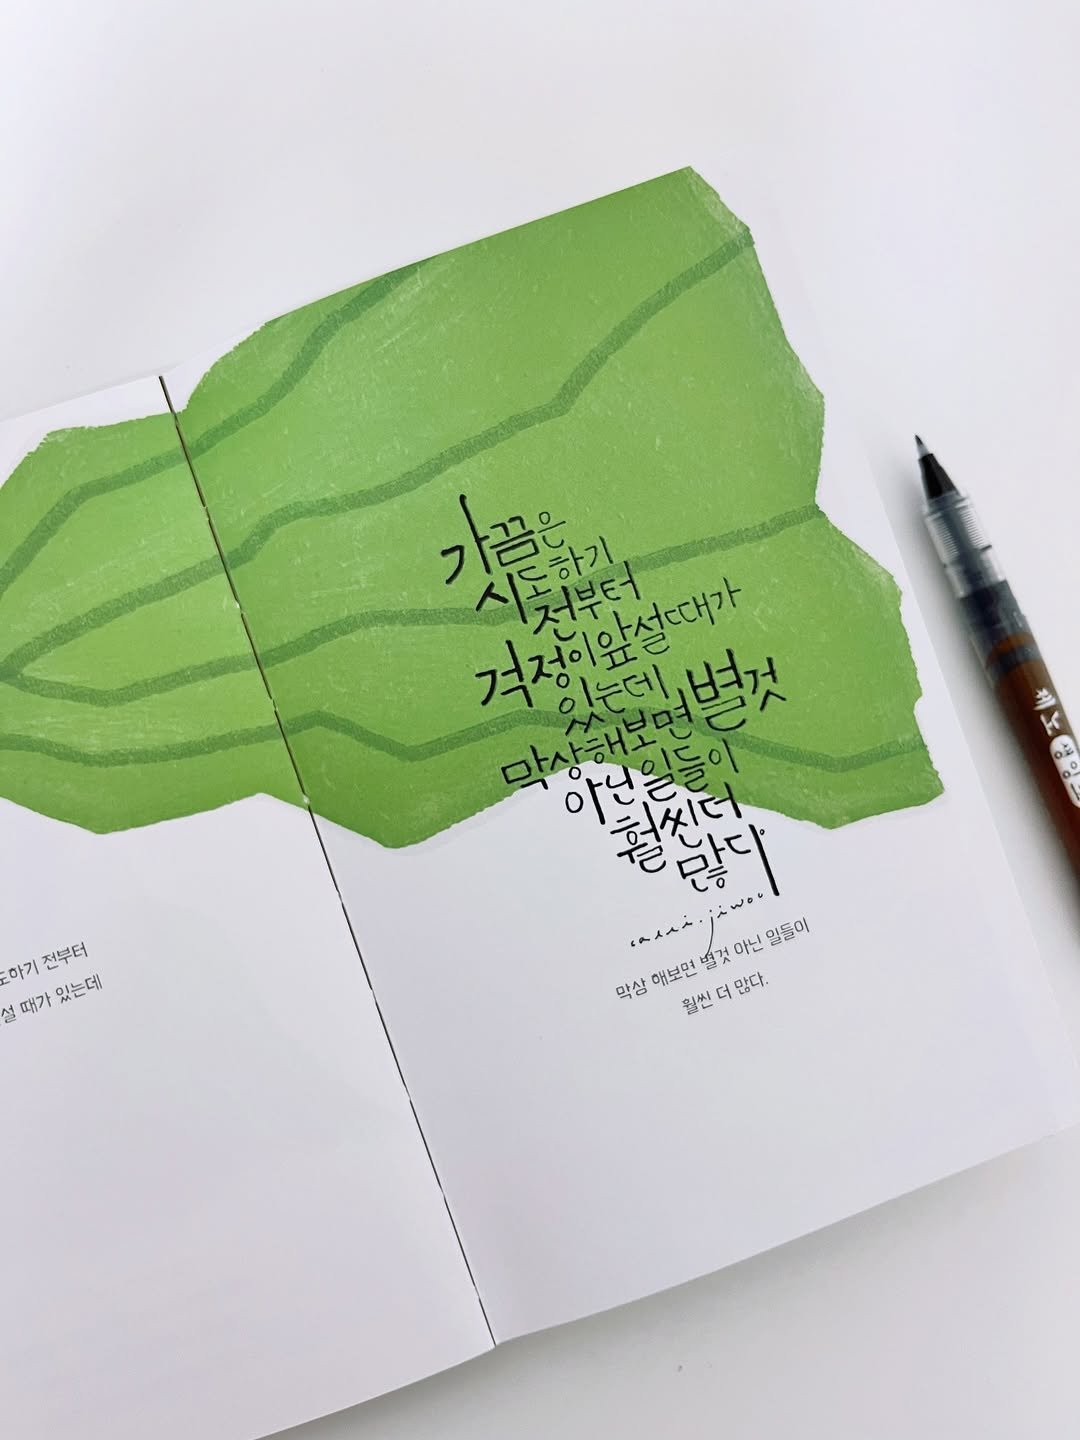 가끔은
시도하기
전부터
걱정이앞설때가
있는데
막상해보면별것
아닌일들이
훨씬더
많다.
calli.jiwoo
도하기 전부터
설 때가 있는데
막상 해보면 별것 아닌 일들이
훨씬 더 많다.